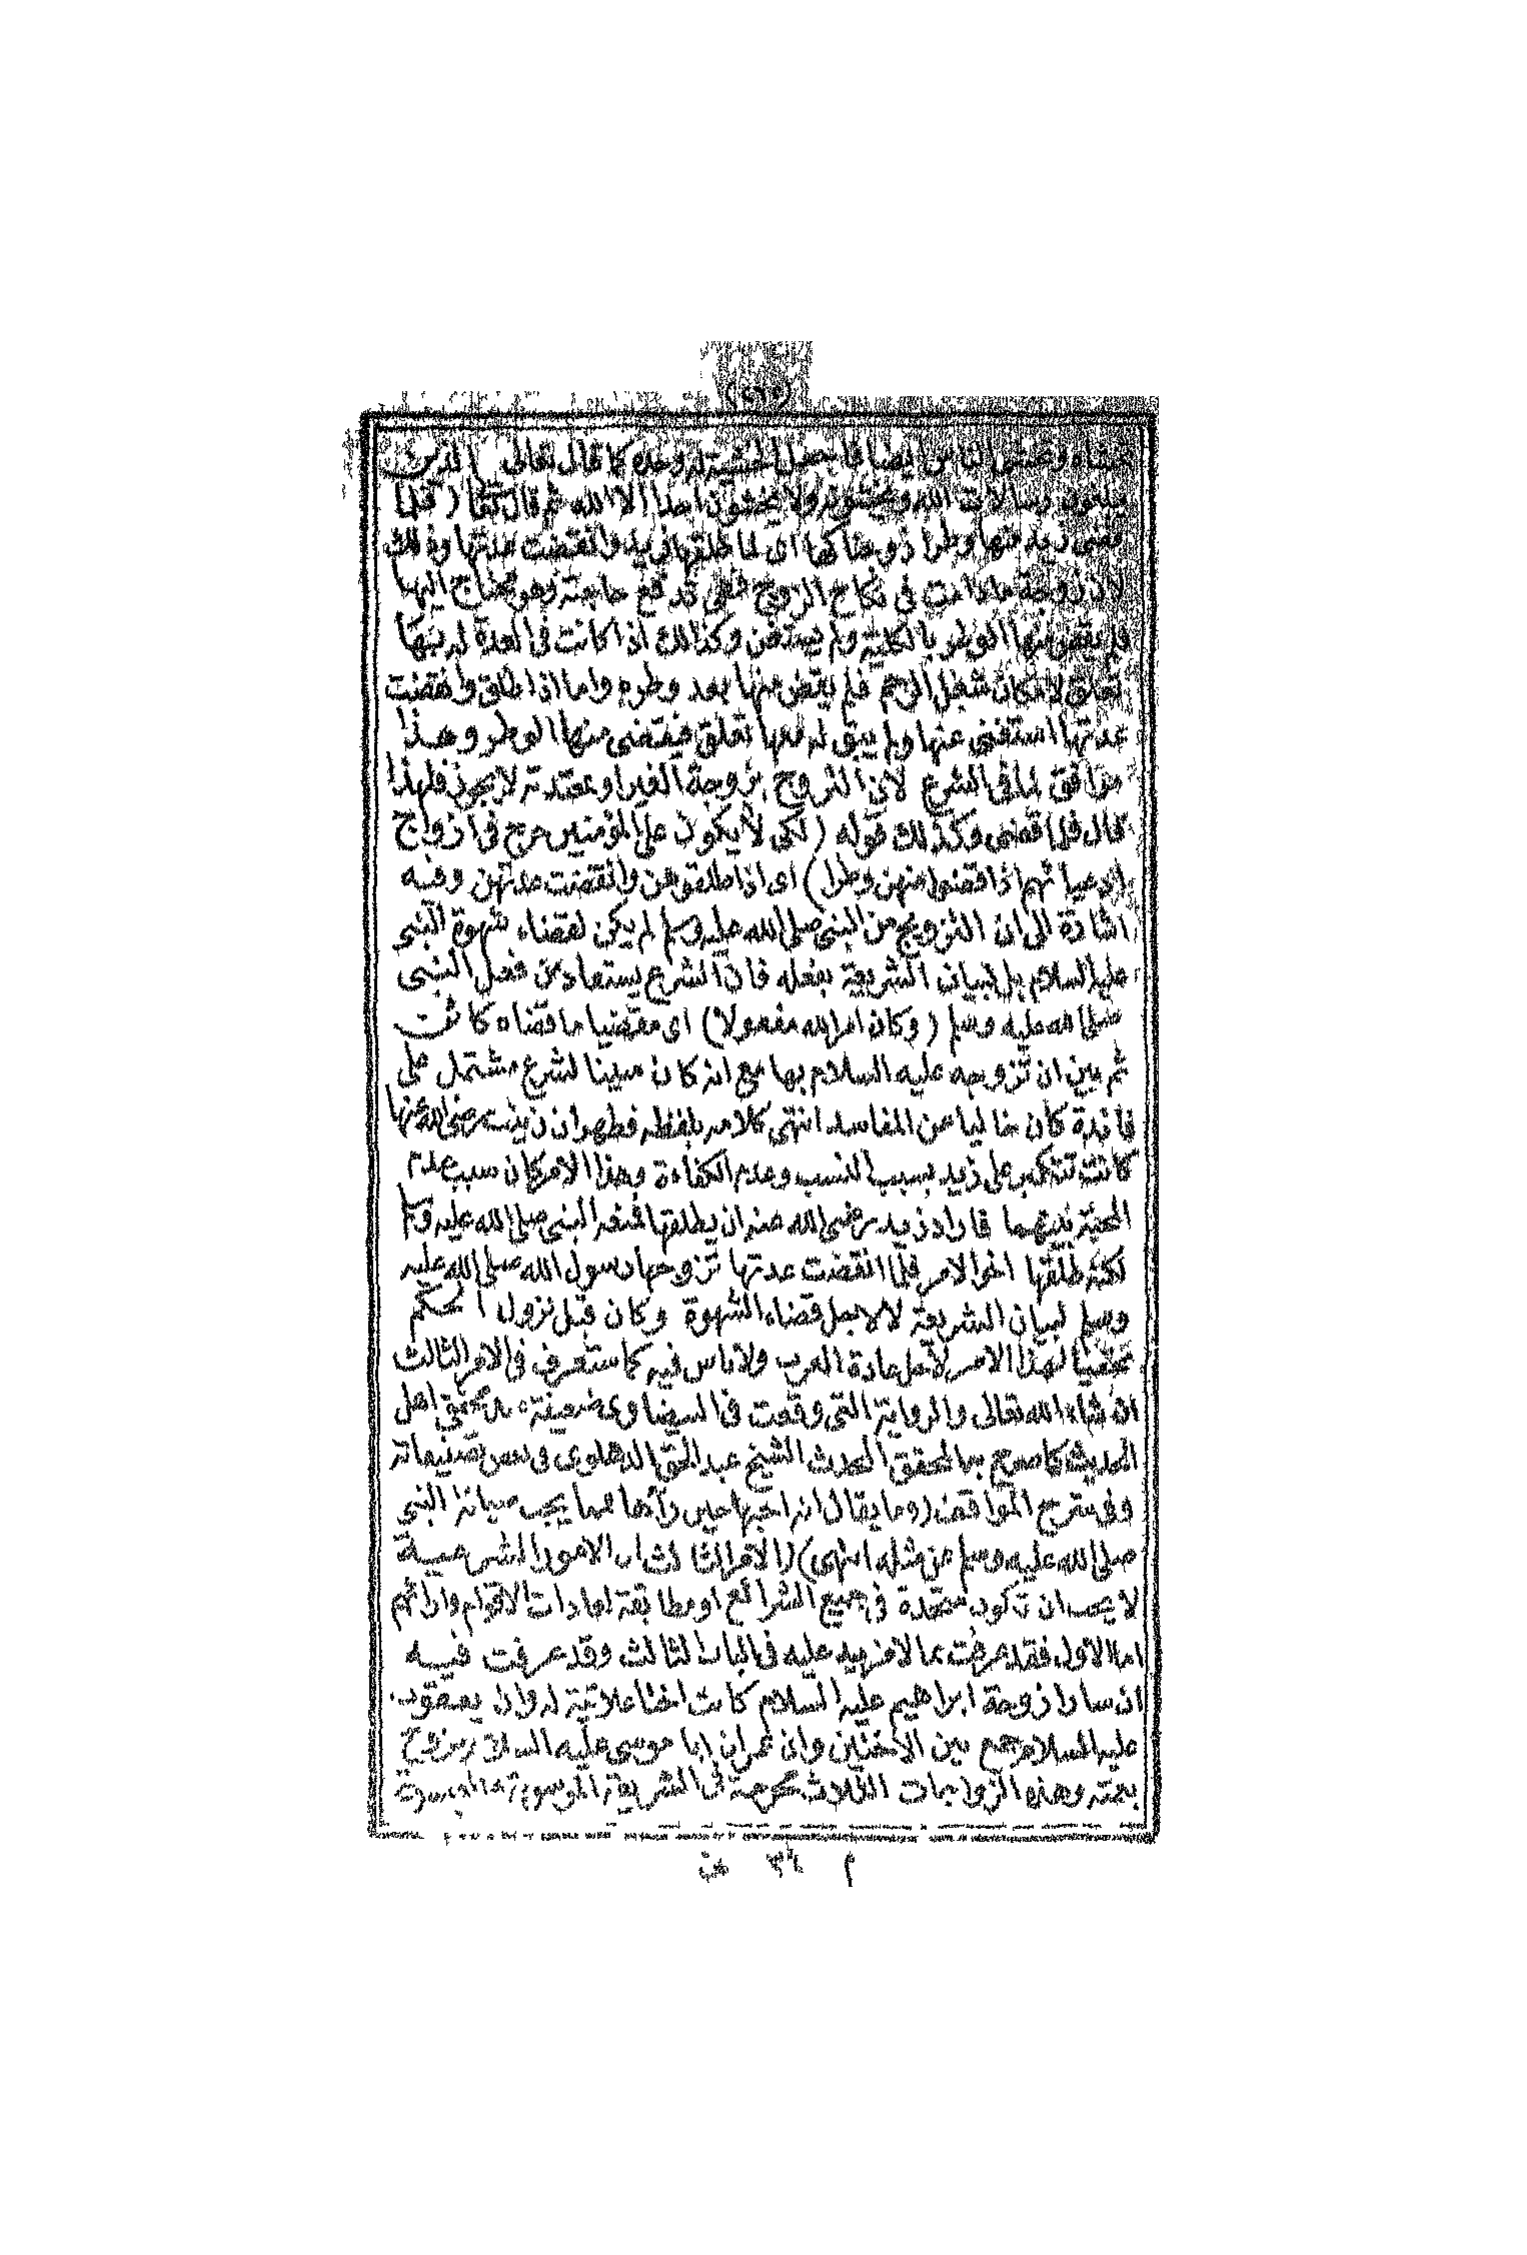 وتخشى الناس ايضا فاجعل الخشية له وحده كما قال تعالى (الذين
يبلغون رسالات الله ويخشونه ولا يخشون احدا الا الله ثم قال تعالى (فلما
قضى زيد منها وطرا زوجناكها اى لما طلقها زيد وانقضت عدتها وذلك
لان الزوجة ما دامت فى نكاح الزوج فهى تدفع حاجته وهو محتاج اليها
فلم يقض منها الوطر بالكلية ولم يستغن وكذلك اذا كانت فى العدة له بها
تعلق لامكان شغل الرحم فلم يقض منها بعد وطره واما اذا طلق وانقضت
عدتها استغنى عنها ولم يبق له معها تعلق فيقضى منها الوطر وهذا
موافق لما فى الشرع لان التزوج بزوجة الغير او بمعتدته لا يجوز فلهذا
قال فلما قضى وكذلك قوله (لكى لا يكون على المؤمنين حرج فى ازواج
ادعيائهم اذا قضوا منهن وطرا) اى اذا طلقوهن وانقضت عدتهن وفيه
اشارة الى ان التزويج من النبى صلى الله عليه وسلم لم يكن لقضاء شهوة النبى
عليه السلام بل لبيان الشريعة بفعله فان الشرع يستفاد من فعل النبى
صلى الله عليه وسلم (وكان امر الله مفعولا) اى مقضيا ما قضاه كائن
ثم بين ان تزوجه عليه السلام بها مع انه كان مبينا لشرع مشتمل على
فائدة كان خاليا من المفاسد انتهى كلامه بلفظه فظهر ان زينب رضى الله عنها
كانت تتكبر على زيد بسبب النسب وعدم الكفاءة وهذا الامر كان سبب عدم
المحبة بينهما فاراد زيد رضى الله عنه ان يطلقها فمنعه النبى صلى الله عليه وسلم
لكنه طلقها اخر الامر فلما انقضت عدتها تزوجها رسول الله صلى الله عليه
وسلم لبيان الشريعة لا لاجل قضاء الشهوة وكان قبل نزول الحكم
مخفيا لهذا الامر لاجل عادة العرب ولا باس فيه كما ستعرف فى الامر الثالث
ان شاء الله تعالى والرواية التى وقعت فى البيضاوى ضعيفة عند محققى اهل
الحديث كما صرح به المحقق المحدث الشيخ عبد الحق الدهلوى فى بعض تصنيفاته
وفى شرح المواقف (وما يقال انه احبها حين رآها فمما يجب صيانة النبى
صلى الله عليه وسلم عن مثله انتهى) (الامر الثالث) ان الامور الشرعية
لا يجب ان تكون متحدة فى جميع الشرائع او مطابقة لعادات الاقوام وارائهم
اما الاول فقد عرفت بما لا مزيد عليه فى الباب الثالث وقد عرفت فيه
ان سارا زوجة ابراهيم عليه السلام كانت اختا علاتية له وان يعقوب
عليه السلام جمع بين الاختين وان عمران ابا موسى عليه السلام تزوج
بعمته وهذه الزواجات الثلاث محرمة فى الشريعة الموسوية والعيسوية
م ٣٤ نى